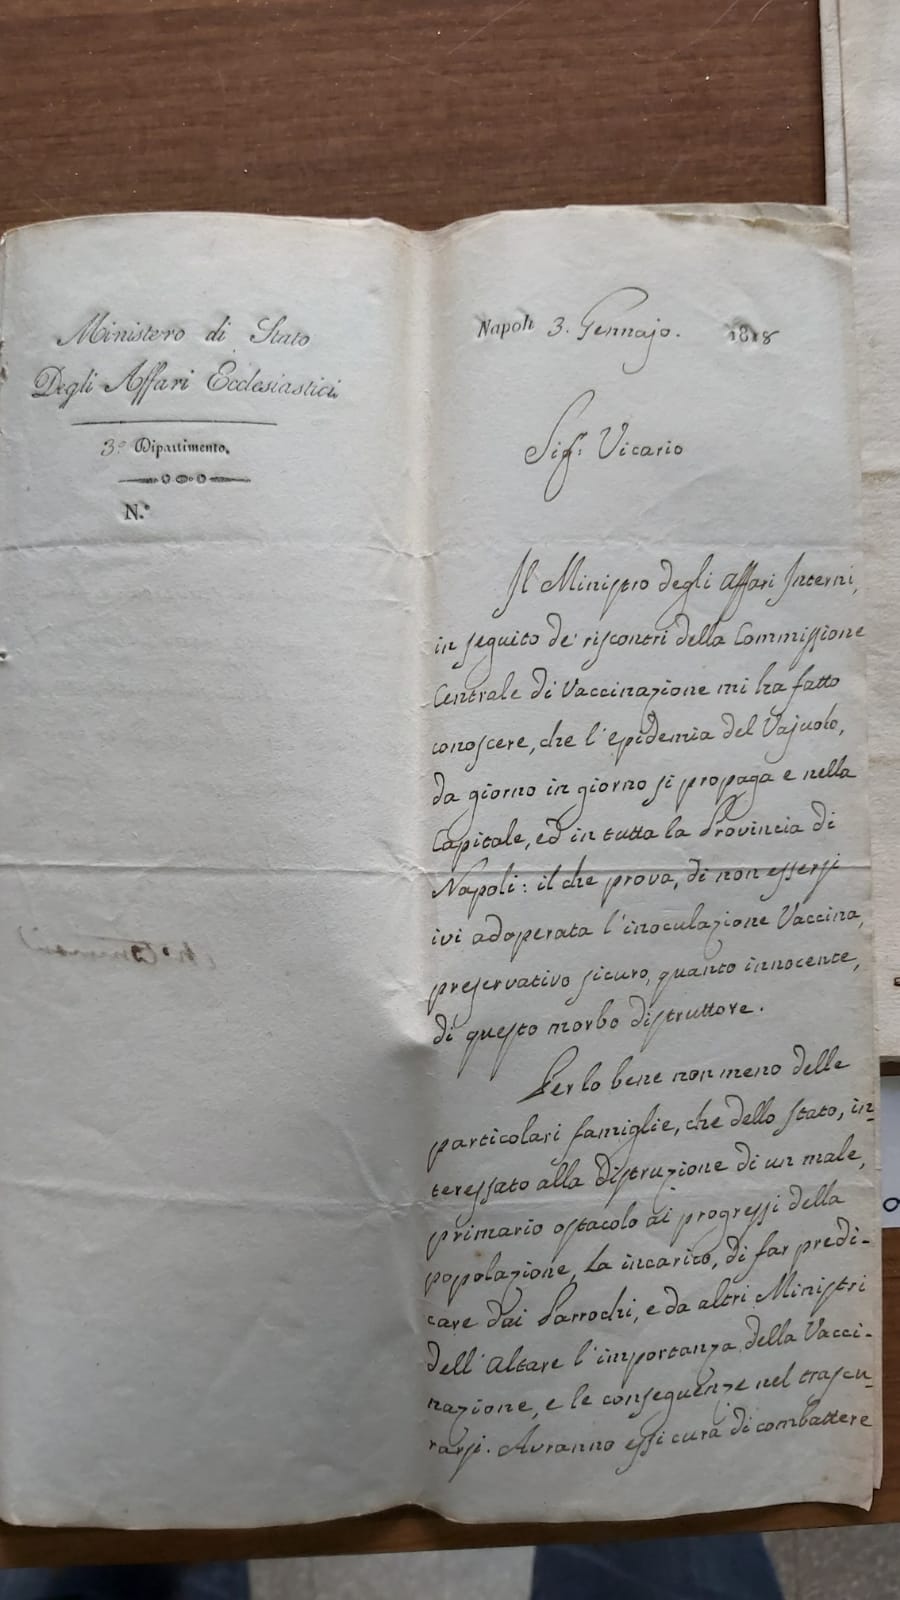 Ministero di Stato
Degli Affari Ecclesiastici
3.° Dipartimento.
N.°
Napoli 3. Gennajo. 1818
Sig.: Vicario
Il Ministro degli Affari Interni,
in seguito de' riscontri della Commissione
Centrale di Vaccinazione mi ha fatto
conoscere, che l'epidemia del Vajuolo,
da giorno in giorno si propaga e nella
Capitale, ed in tutta la Provincia di
Napoli: il che prova, di non essersi
ivi adoperata l'inoculazione Vaccina,
preservativo sicuro, quanto innocente,
di questo morbo distruttore.
Per lo bene non meno delle
particolari famiglie, che dello stato, in=
teressato alla distruzione di un male,
primario ostacolo ai progressi della
popolazione, La incarico, di far predi-
care dai Parrochi, e da altri Ministri
dell'Altare l'importanza della Vacci-
nazione, e le conseguenze nel trascu=
rarsi. Avranno essi cura di combattere